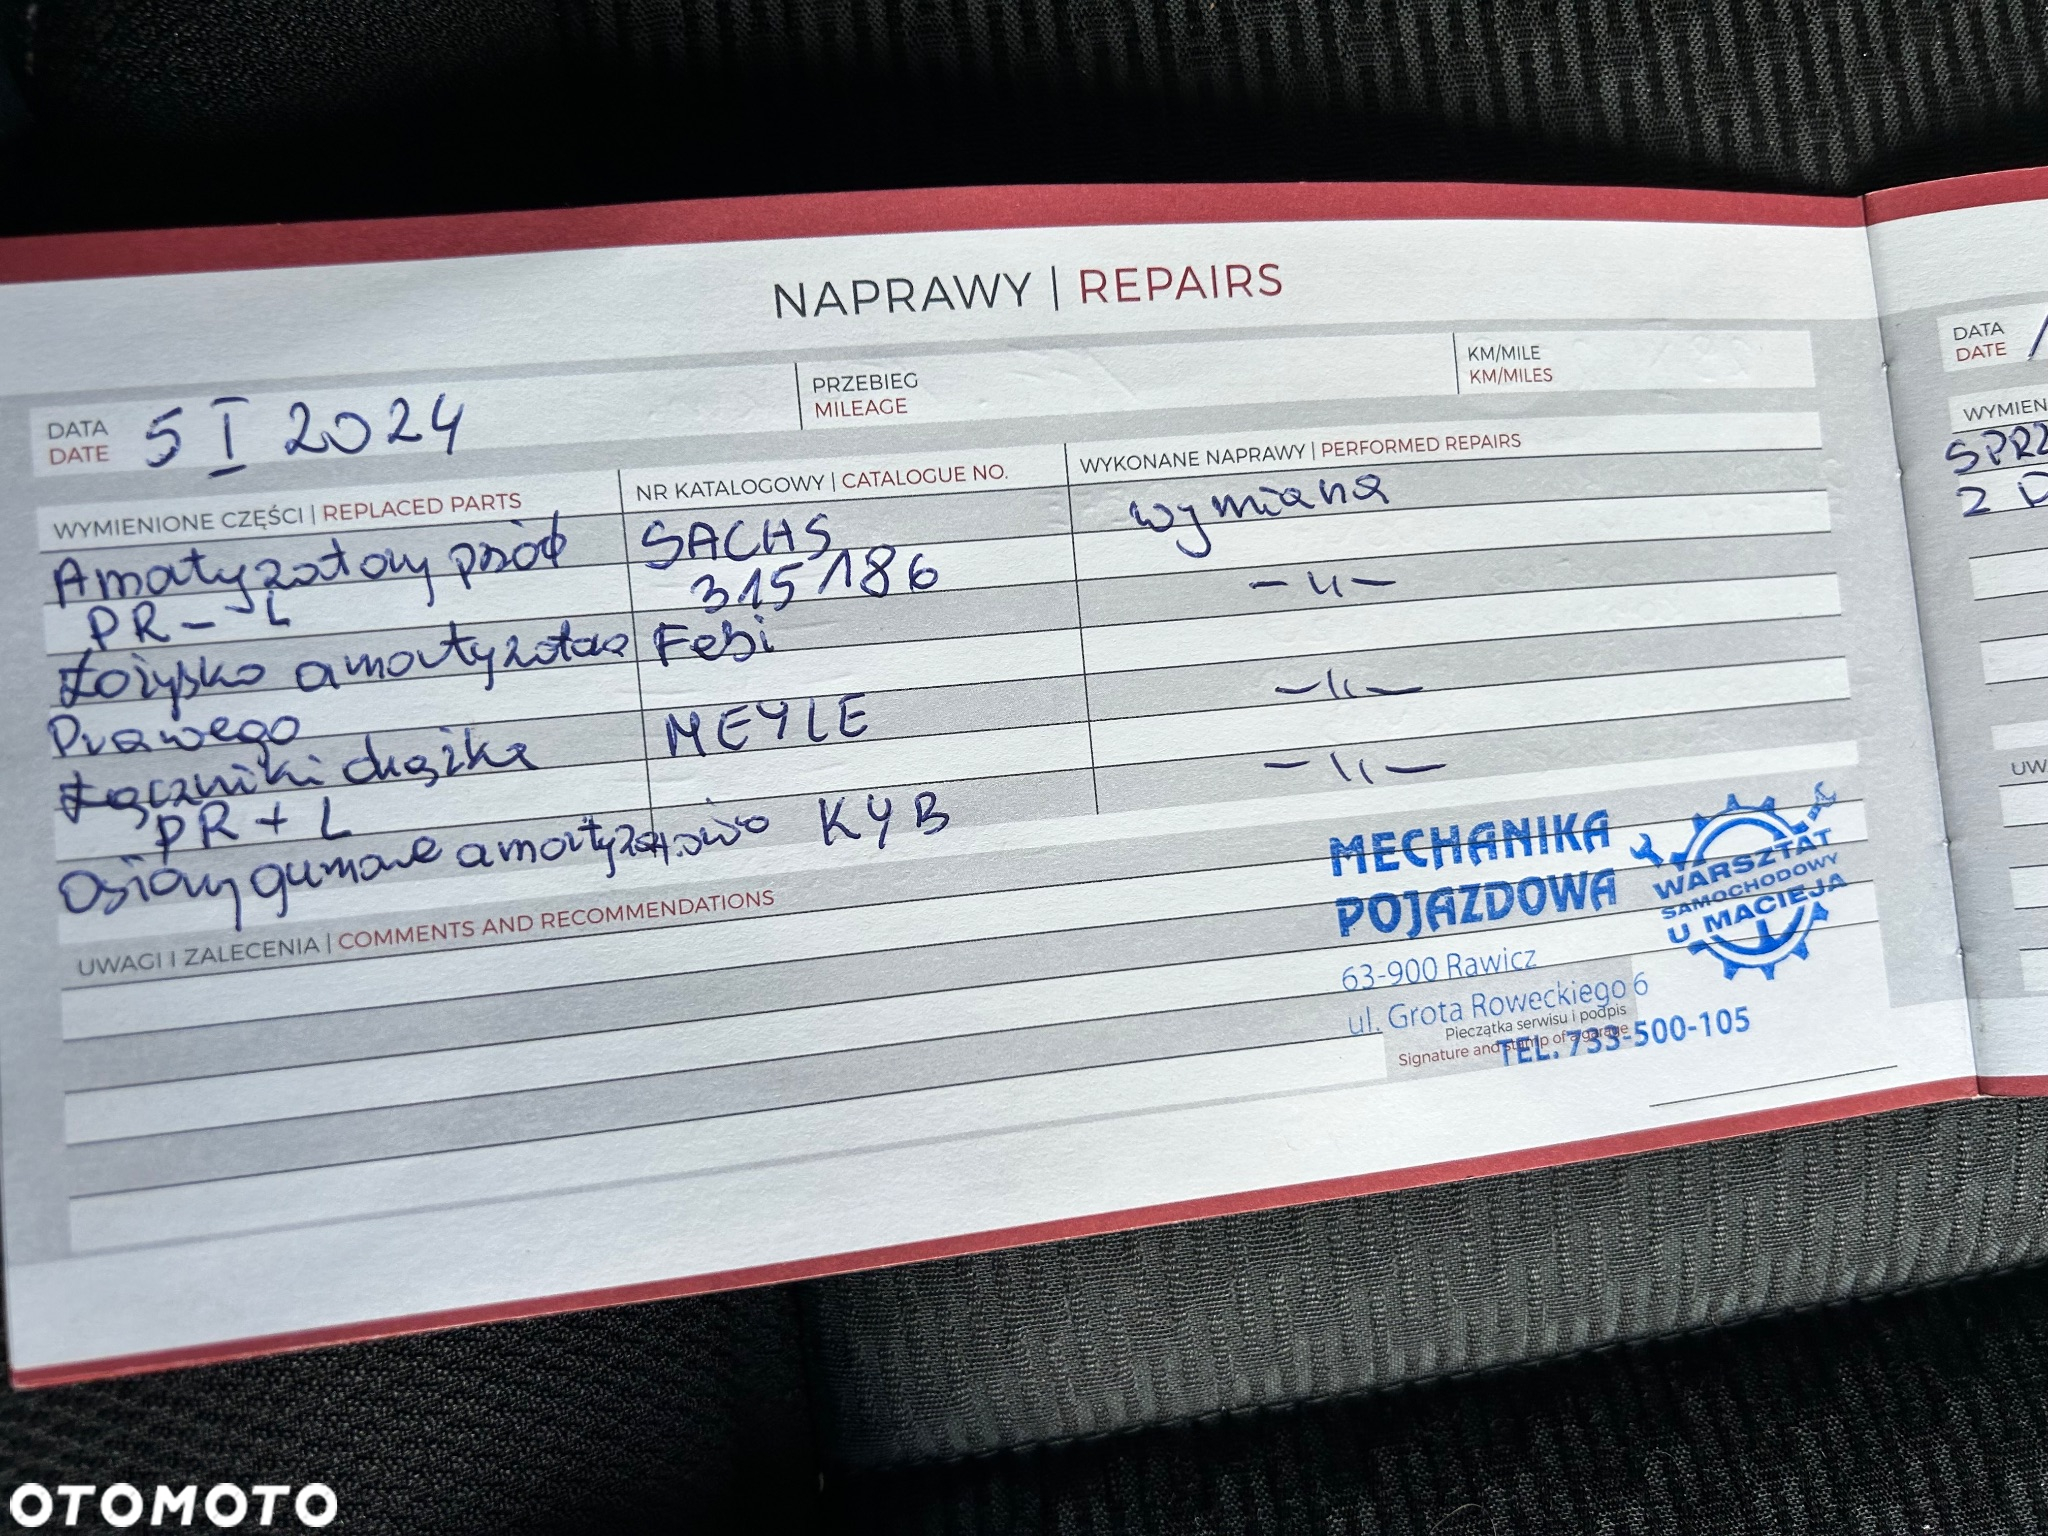 NAPRAWY | REPAIRS
DATA
DATE
5 I 2024
PRZEBIEG
MILEAGE
KM/MILE
KM/MILES
WYMIENIONE CZĘŚCI | REPLACED PARTS
NR KATALOGOWY | CATALOGUE NO.
WYKONANE NAPRAWY | PERFORMED REPAIRS
Amatyzatory przód
SACHS
wymiana
PR - L
315 186
Łożysko amortyzatora
Febi
Prawego
Łączniki drążka
MEYLE
PR + L
Osłony gumowe amortyzatorów KYB
UWAGI I ZALECENIA | COMMENTS AND RECOMMENDATIONS
MECHANIKA
POJAZDOWA
63-900 Rawicz
ul. Grota Roweckiego 6
TEL. 733-500-105
WARSZTAT
SAMOCHODOWY
U MACIEJA
Pieczątka serwisu i podpis
Signature and stamp of a garage
DATA
DATE
WYMIEN
SPRZ
2
UWA
OTOMOTO